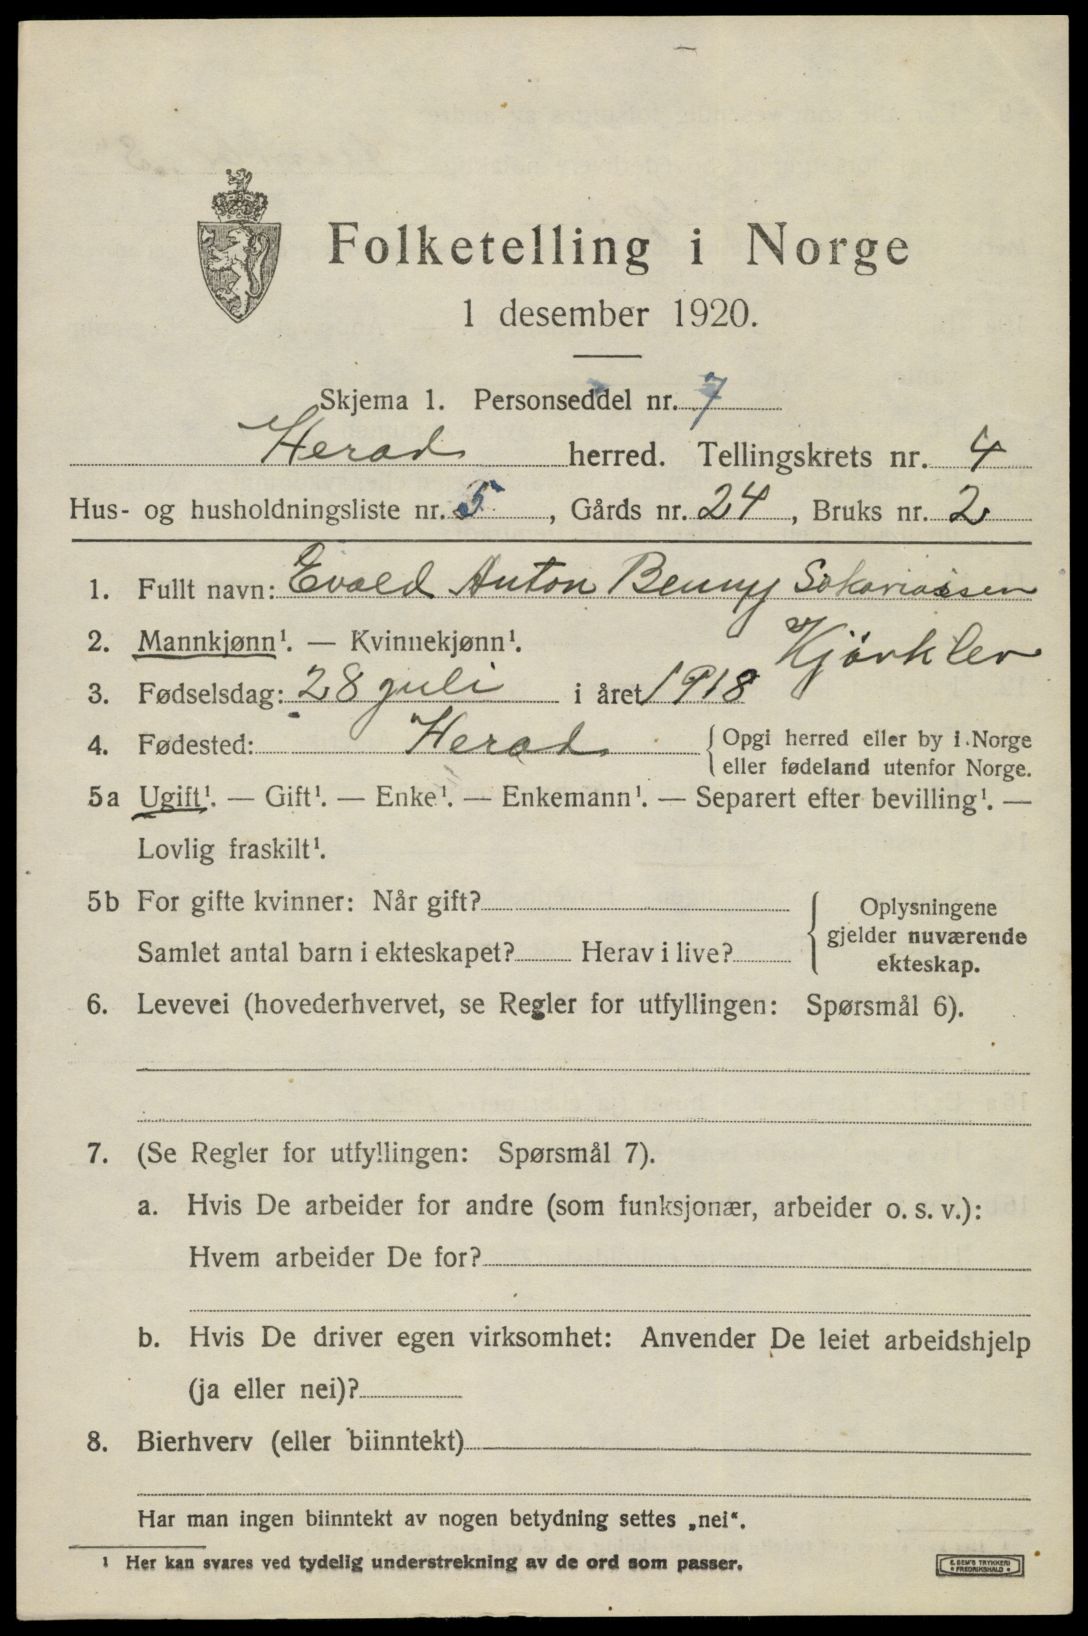 Folketelling i Norge
1 desember 1920.
Skjema 1. Personseddel nr. 7
Herad herred. Tellingskrets nr. 4
Hus- og husholdningsliste nr. 5, Gårds nr. 24, Bruks nr. 2
1. Fullt navn: Evald Anton Benny Sakariassen
2. Mannkjønn¹. — Kvinnekjønn¹. Kjørklev
3. Fødselsdag: 28 juli i året 1918
4. Fødested: Herad { Opgi herred eller by i Norge
eller fødeland utenfor Norge.
5a Ugift¹. — Gift¹. — Enke¹. — Enkemann¹. — Separert efter bevilling¹. —
Lovlig fraskilt¹.
5b For gifte kvinner: Når gift?
Samlet antal barn i ekteskapet? Herav i live?
{ Oplysningene
gjelder nuværende
ekteskap.
6. Levevei (hovederhvervet, se Regler for utfyllingen: Spørsmål 6).
7. (Se Regler for utfyllingen: Spørsmål 7).
a. Hvis De arbeider for andre (som funksjonær, arbeider o. s. v.):
Hvem arbeider De for?
b. Hvis De driver egen virksomhet: Anvender De leiet arbeidshjelp
(ja eller nei)?
8. Bierhverv (eller biinntekt)
Har man ingen biinntekt av nogen betydning settes „nei“.
¹ Her kan svares ved tydelig understrekning av de ord som passer.
E. SEM'S TRYKKERI
FREDRIKSHALD